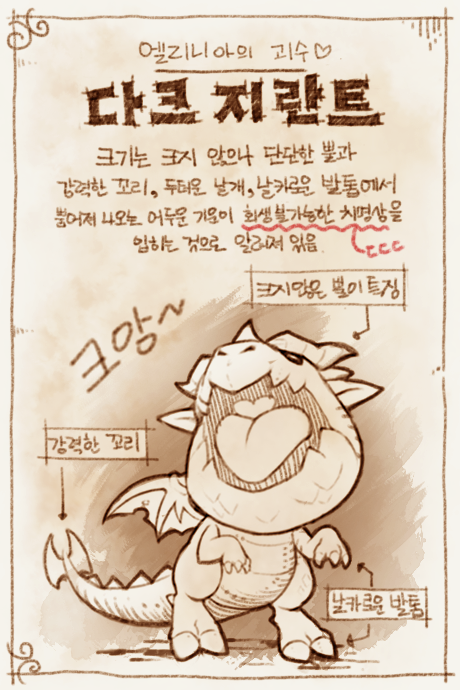 엘리니아의 괴수♡
다크 지란트
크기는 크지 않으나 단단한 뿔과
강력한 꼬리, 두터운 날개, 날카로운 발톱에서
뿜어져 나오는 어두운 기운이 회생불가능한 치명상을
입히는 것으로 알려져 있음.
ㄷㄷㄷ
크지않은 뿔이 특징
크앙~
강력한 꼬리
날카로운 발톱